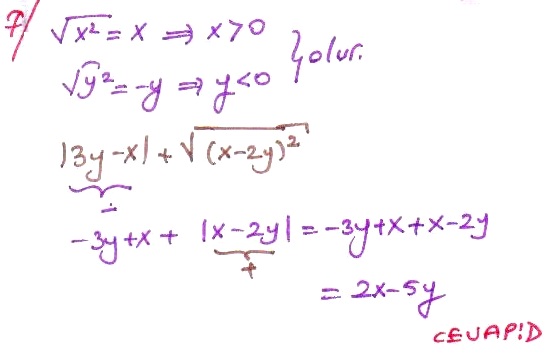 7/ √x² = x ⇒ x>0
√y² = -y ⇒ y<0 } olur.
|3y-x| + √(x-2y)²
-
-3y+x + |x-2y| = -3y+x+x-2y
+
= 2x-5y
CEVAP!D